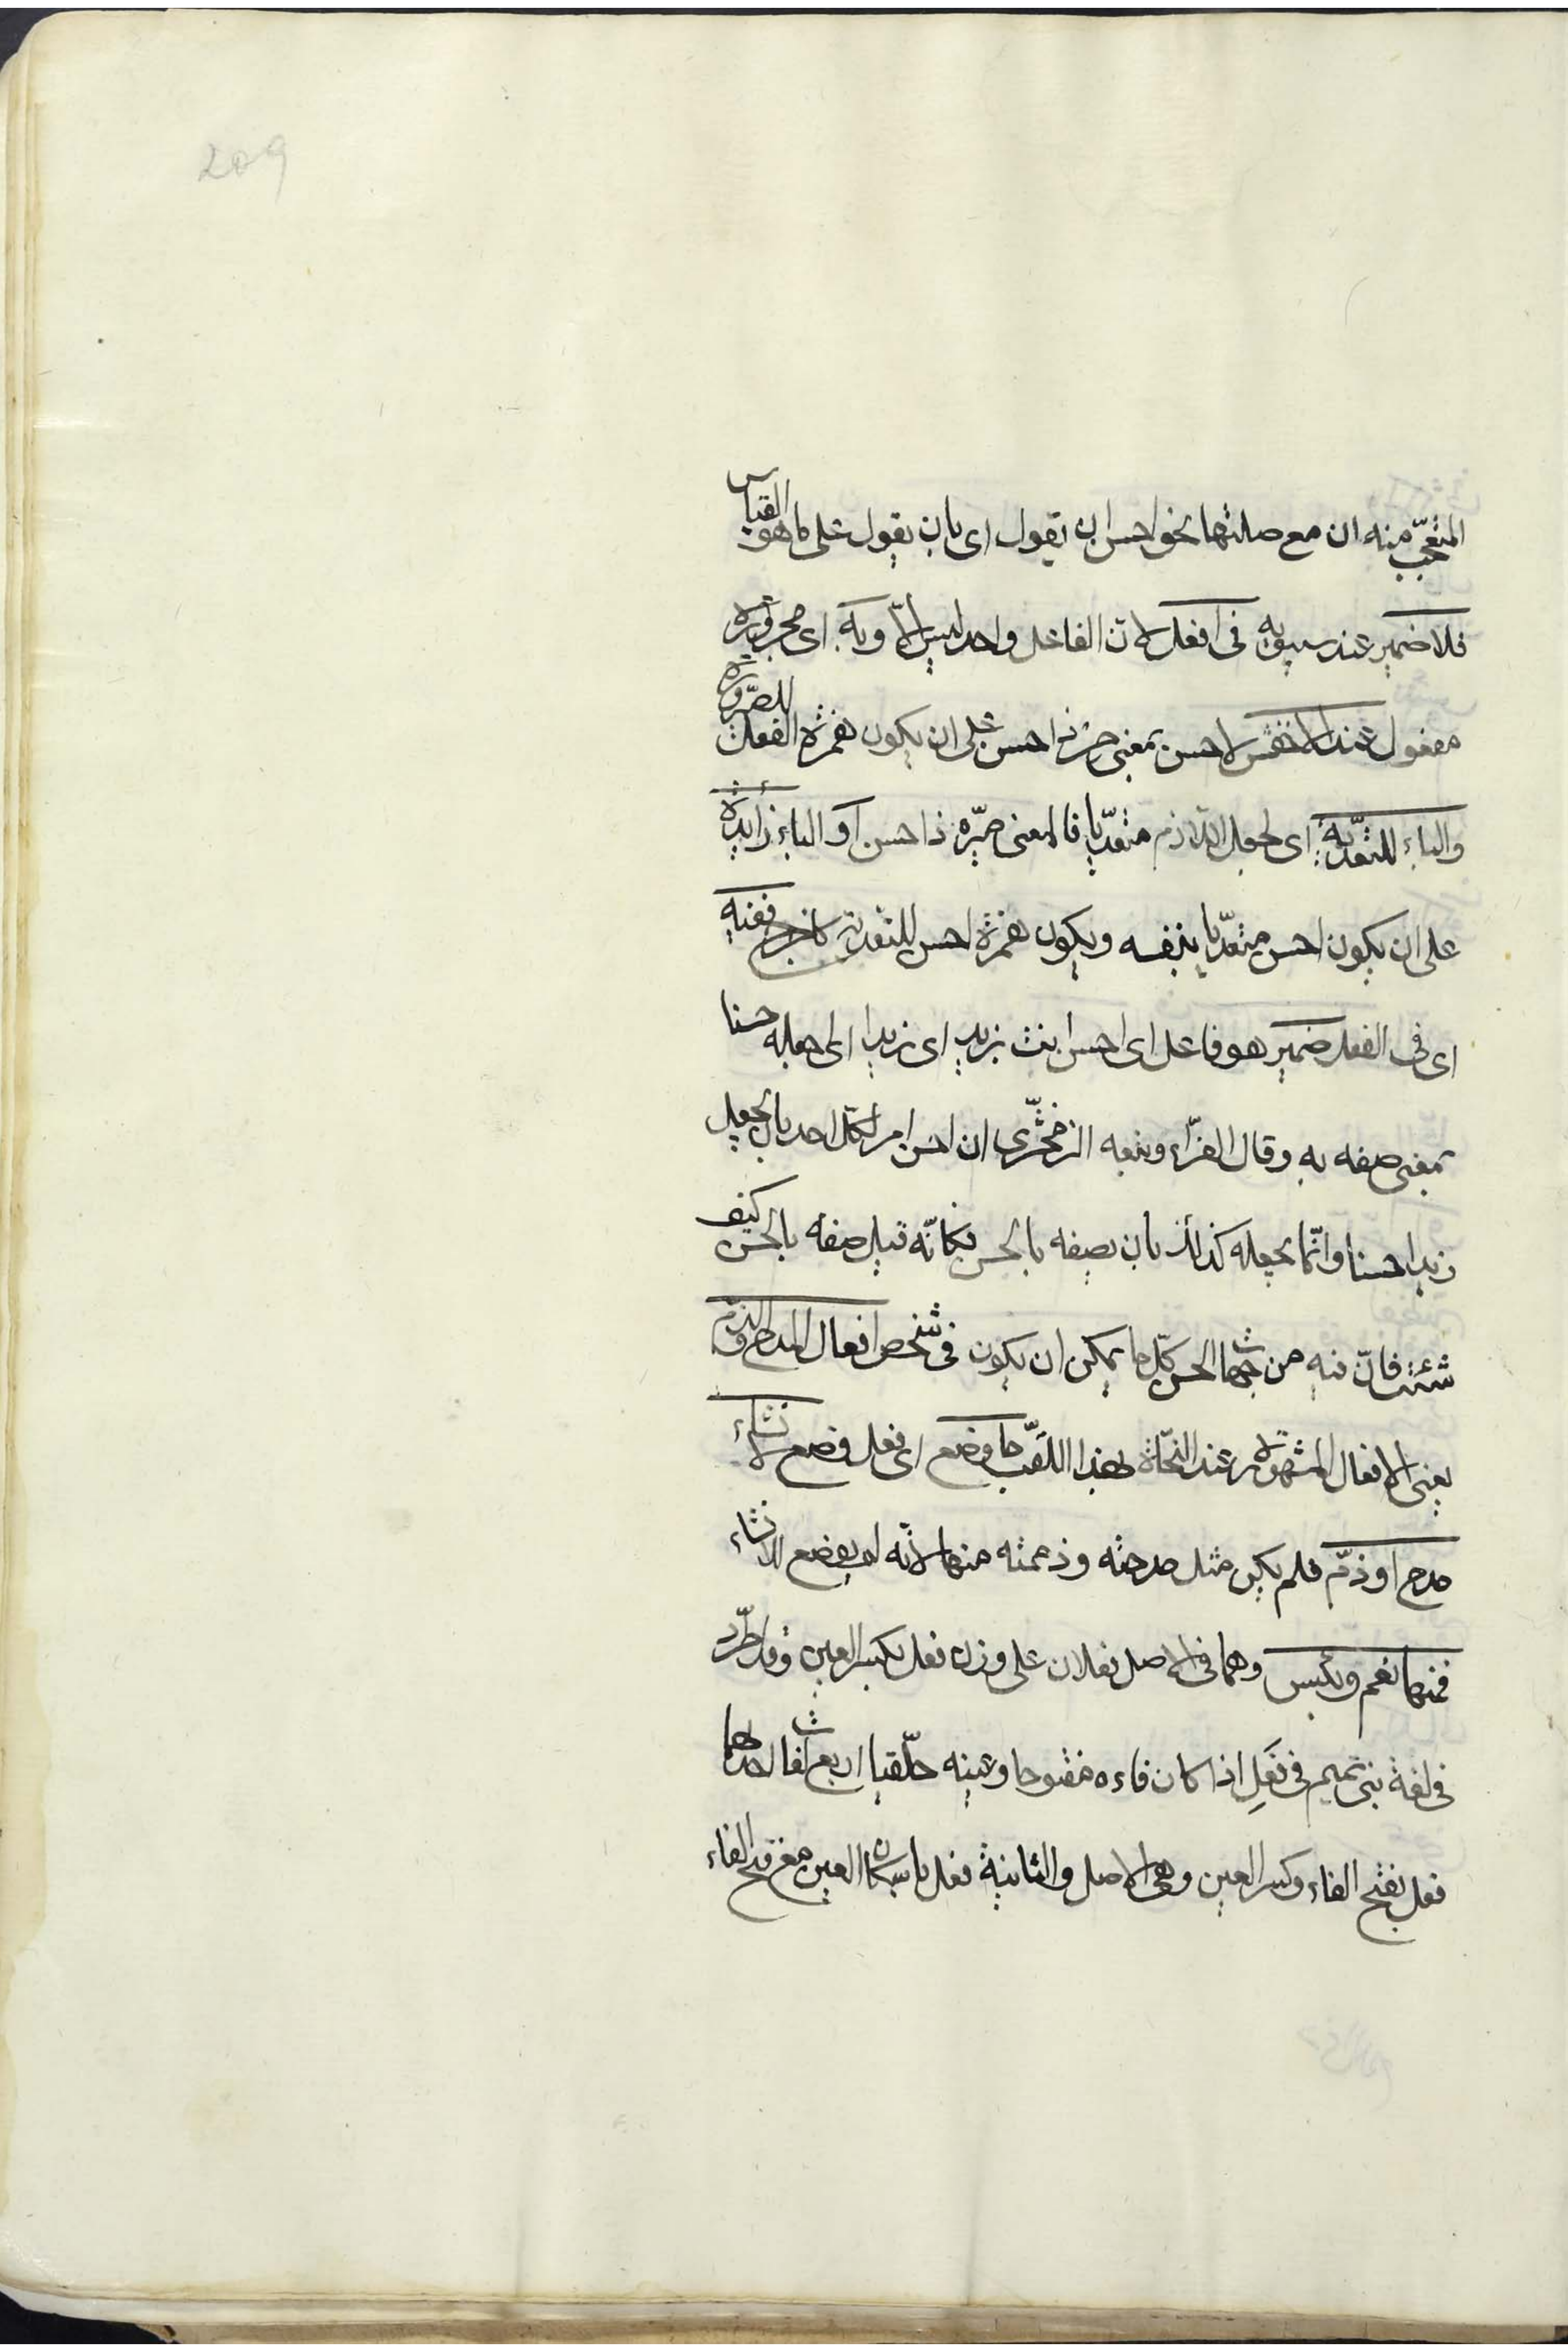 209
المتعجب منه ان مع صلتها نحو احسن ان تقول اى بان تقول على ما هو القياس
فلا ضمير عند سيبويه فى افعل لان الفاعل واحد ليس الا وبه اى مجروره
مفعول عند الاخفش لاحسن بمعنى صر ذا حسن على ان يكون همزة افعل للصيرورة
والباء للتعدية اى لجعل اللازم متعديا فالمعنى صيره ذا حسن او الباء زايدة
على ان يكون احسن متعديا بنفسه ويكون همزة احسن للتعدية كاخرج ففيه
اى فى الفعل ضمير هو فاعل اى احسن انت بزيد اى زيدا اى اجعله حسنا
بمعنى صفه به وقال الفرّاء وتبعه الزمخشرى ان احسن امر لكل احد بان يجعل
زيدا حسنا وانّما يجعله كذلك بان يصفه بالحسن فكانّه قيل صفه بالحسن كيف
شئت فانّ فيه من جهات الحسن كلّ ما يمكن ان يكون فى شخص افعال المدح والذمّ
يعنى الافعال المشهورة عند النحاة بهذا اللقب ما وضع اى فعل وضع لانشاء
مدح او ذمّ فلم يكن مثل مدحته وذممته منها لانّه لم يوضع للانشاء
فمنها نعم وبئس وهما فى الاصل فعلان على وزن فعل بكسر العين وقد اطّرد
فى لغة بنى تميم فى فَعِل اذا كان فاءه مفتوحا وعينه حلقيا اربع لغات احدها
فعل بفتح الفاء وكسر العين وهى الاصل والثانية فعل باسكان العين مع فتح الفاء